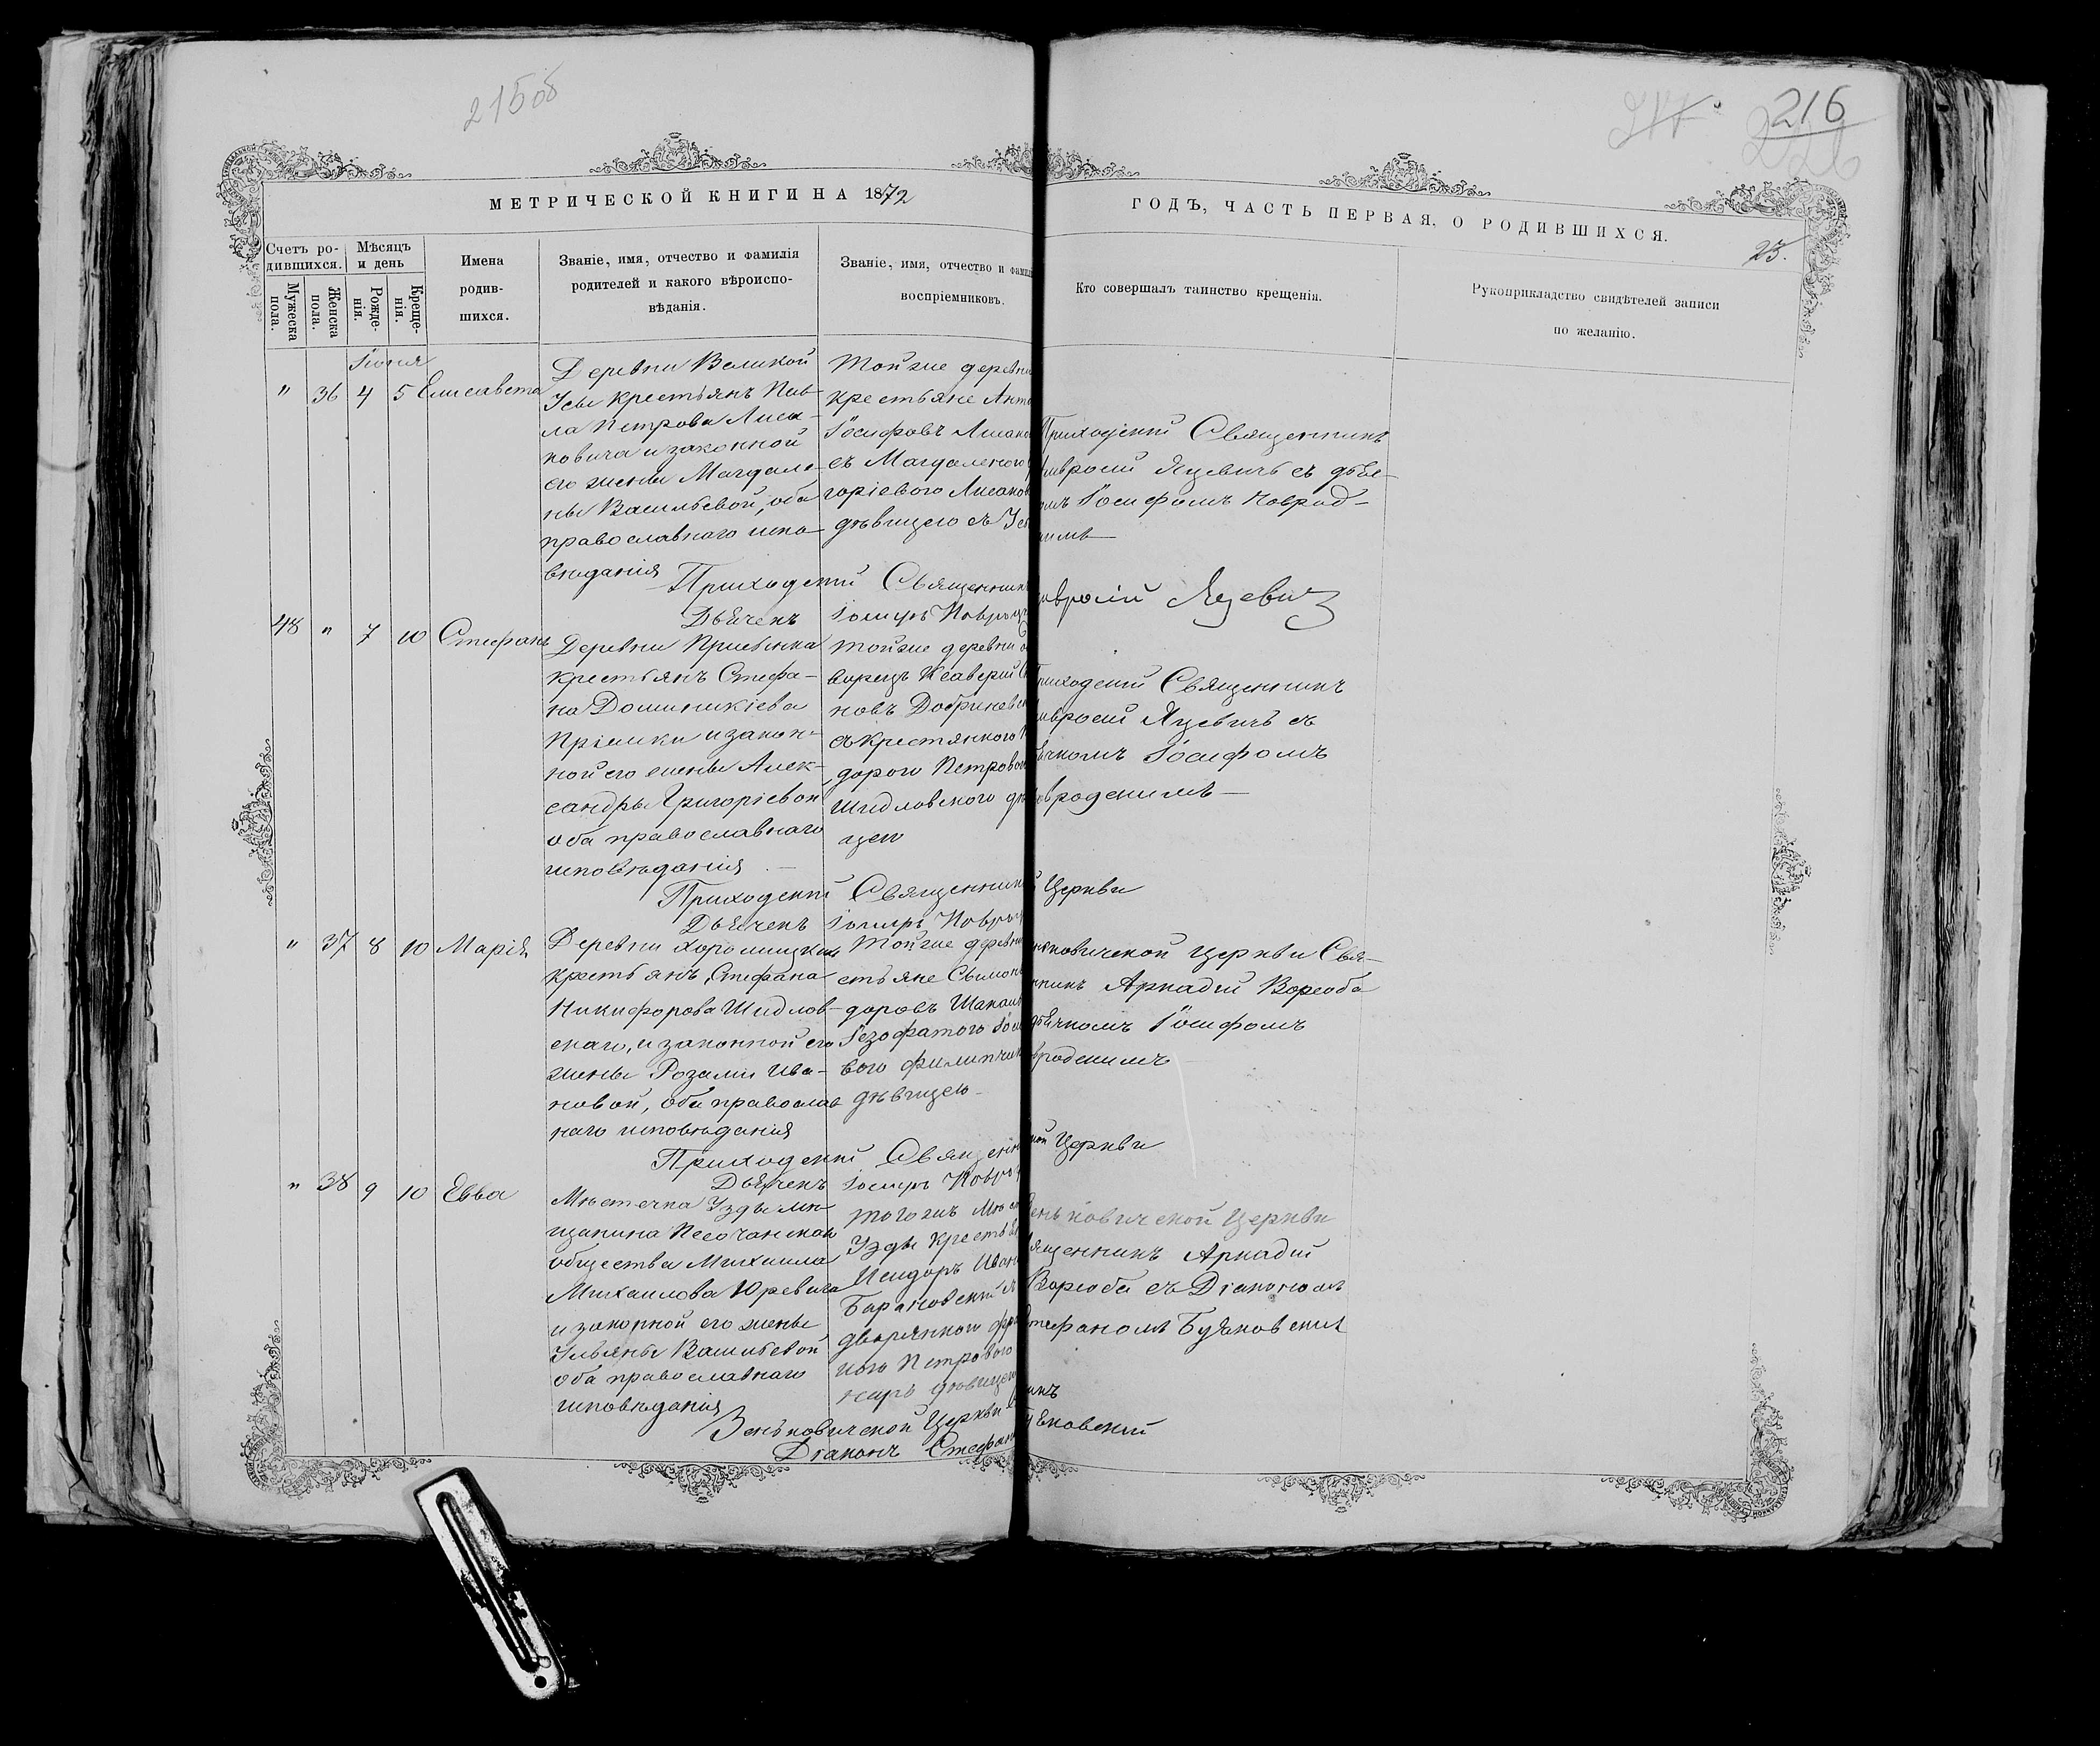 215об
216
МЕТРИЧЕСКОЙ КНИГИ НА 1872
ГОДЪ, ЧАСТЬ ПЕРВАЯ, О РОДИВШИХСЯ.
23.
Счетъ ро-
дившихся.
Мужеска пола.
Женска пола.
Мѣсяцъ
и день
Рожде-
нія.
Креще-
нія.
Имена
родив-
шихся.
Званіе, имя, отчество и фамилія
родителей и какого вѣроиспо-
вѣданія.
Званіе, имя, отчество и фамил
воспріемниковъ.
Кто совершалъ таинство крещенія.
Рукоприкладство свидѣтелей записи
по желанію.
Іюня
" 36 4 5 Елисавета
Деревни Великой
Усы крестьянъ Пав-
ла Петрова Лиса-
ковича и законной
его жены Магдале-
ны Васильевой, оба
православнаго испо-
вѣданія
Тойже деревни
крестьяне Анто
Іосифовъ Лисако
съ Магдаленою
горіевою Лисаков
дѣвицею съ
Приходскій Священникъ
мвросій Яцевичъ съ дья-
омъ Іосифомъ Коврод-
Приходскій Священник
мвросій Яцевич
Дьячекъ Іосифъ
48 " 7 10 Стефанъ
Деревни Присынка
крестьянъ Стефа-
на Доминикіева
Пріемки и закон-
ной его жены Алек-
сандры Григоріевой
оба православнаго
исповѣданія
тойже деревни
ворецъ Ксаверій
новъ Добриневс
съ крестянкою
дорою Петровою
Шидловскою дѣ
цею
риходскій Священникъ
мвросій Яцевичъ съ
ячкомъ Іосифомъ
овродскимъ
Приходскій Священник Церкви
Дьячекъ Іосифъ
" 37 8 10 Марія
Деревни Хоромицкихъ
крестьянъ Стефана
Никифорова Шидлов-
скаго, и законной его
жены Розаліи Ива-
новой, оба православ
наго исповѣданія
Тойже деревни
стьяне Сымонъ
доровъ
Іезофатою Іос
вою Филипчик
дѣвицею
ковичской Церкви Свя-
нникъ Аркадій Вореоба
дьячкомъ Іосифомъ
вродскимъ
Приходскій Священн ской Церкви
Дьячекъ Іосифъ
" 38 9 10 Евва
Мѣстечка Узды мѣ-
щанина Песочанскаго
общества Михаила
Михаилова Юревича
и законной его жены
Ульяны Васильевой
оба православнаго
исповѣданія
тогожъ Мѣс
Узды крестья
Исидоръ Иван
Барановскій
дворянкою
Петровою
дѣвицею
еньковичской Церкви
ященникъ Аркадій
Вореоба съ Діакономъ
тефаномъ Буяковским
Зеньковичской Церкви
Діаконъ Стефан яковскій